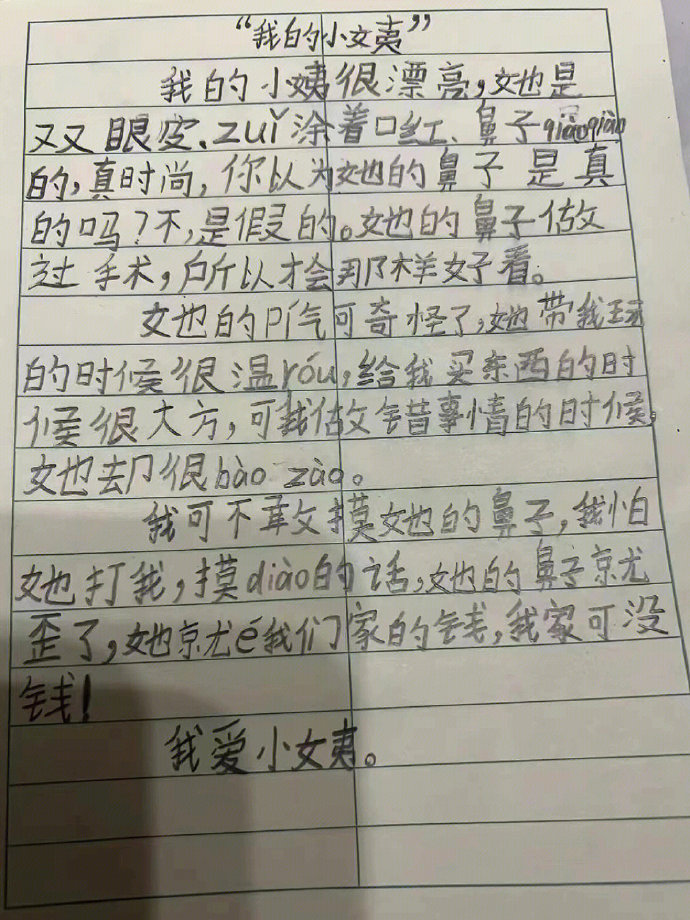 “我的小姨”
我的小姨很漂亮,她是
双眼皮、zuǐ涂着口红、鼻子qiàoqiào
的,真时尚,你以为她的鼻子是真
的吗?不,是假的。她的鼻子做
过手术,所以才会那样好看。
她的pí气可奇怪了,她带我玩
的时候很温róu,给我买东西的时
候很大方,可我做错事情的时候,
她却很bào zào。
我可不敢摸她的鼻子,我怕
她打我,摸diào的话,她的鼻子就
歪了,她就é我们家的钱,我家可没
钱!
我爱小姨。